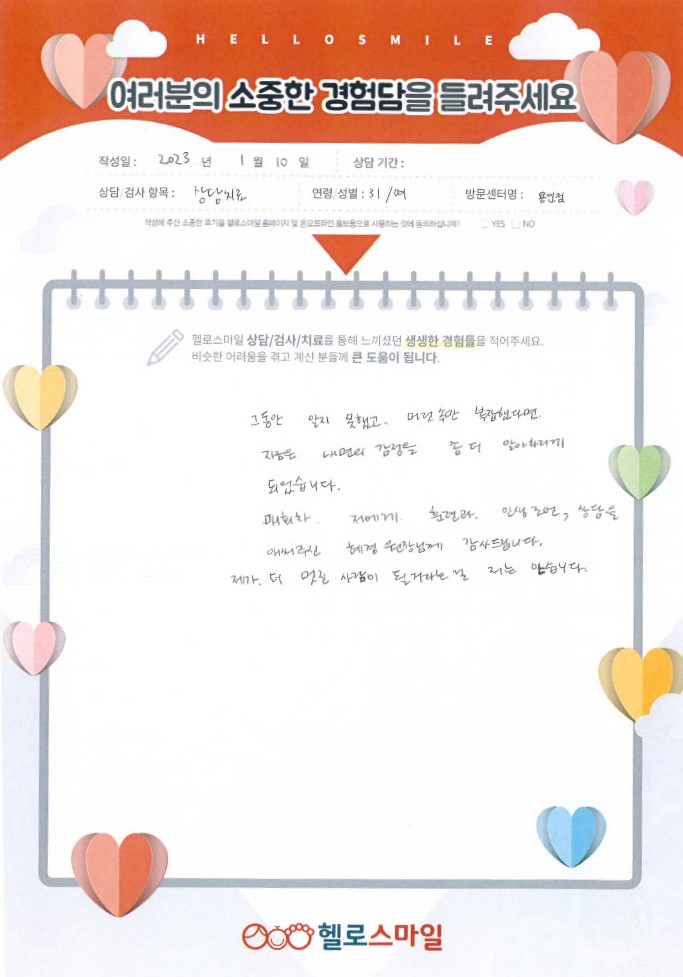 HELLOSMILE
여러분의 소중한 경험담을 들려주세요
작성일 : 2023 년 1 월 10 일 상담 기간 :
상담/검사 항목 : 상담치료 연령/성별 : 31 / 여 방문센터명 : 용인점
작성해 주신 소중한 후기를 헬로스마일 홈페이지 및 온오프라인 홍보용으로 사용하는 것에 동의하십니까? YES NO
헬로스마일 상담/검사/치료를 통해 느끼셨던 생생한 경험들을 적어주세요.
비슷한 어려움을 겪고 계신 분들께 큰 도움이 됩니다.
그동안 알지 못했고, 머릿속만 복잡했다면,
지금은 내면의 감정을 좀 더 알아차리게
되었습니다.
매회차 저에게 훈련과 인생조언, 상담을
애써주신 혜경 원장님께 감사드립니다.
제가 더 멋진 사람이 될거라는 걸 저는 믿습니다.
헬로스마일